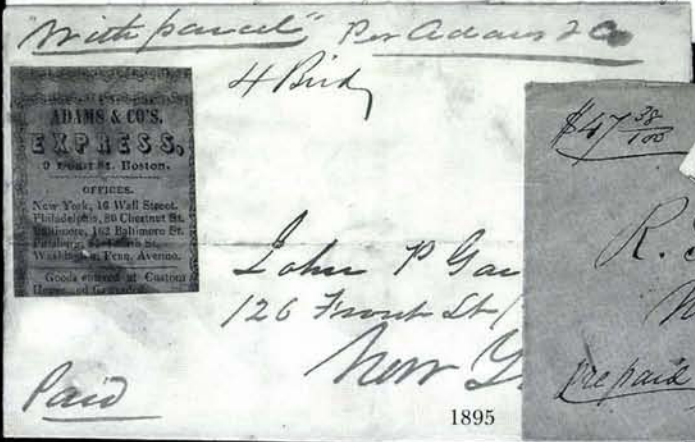 With parcel" Per Adams & Co
4 Birds
ADAMS & CO'S.
EXPRESS,
9 Court St. Boston.
OFFICES.
New York, 16 Wall Street.
Philadelphia, 80 Chestnut St.
Baltimore, 162 Baltimore St.
St.
Washington, Penn. Avenue.
Goods entered at Custom
House, and
John P Gar
126 Front St
New Y
Paid
$47 38/100
R.
prepaid
1895